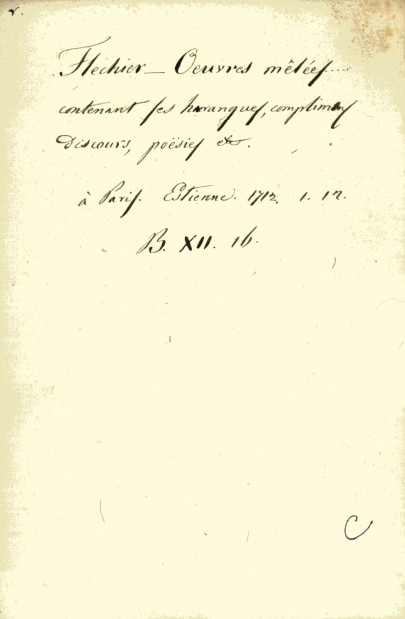 v.
Flechier _ Oeuvres mêlées....
contenant ses harangues, complimens
Discours, poësies &c.
à Paris. Estienne. 1712. 1. 12.
B. XII. 16.
C